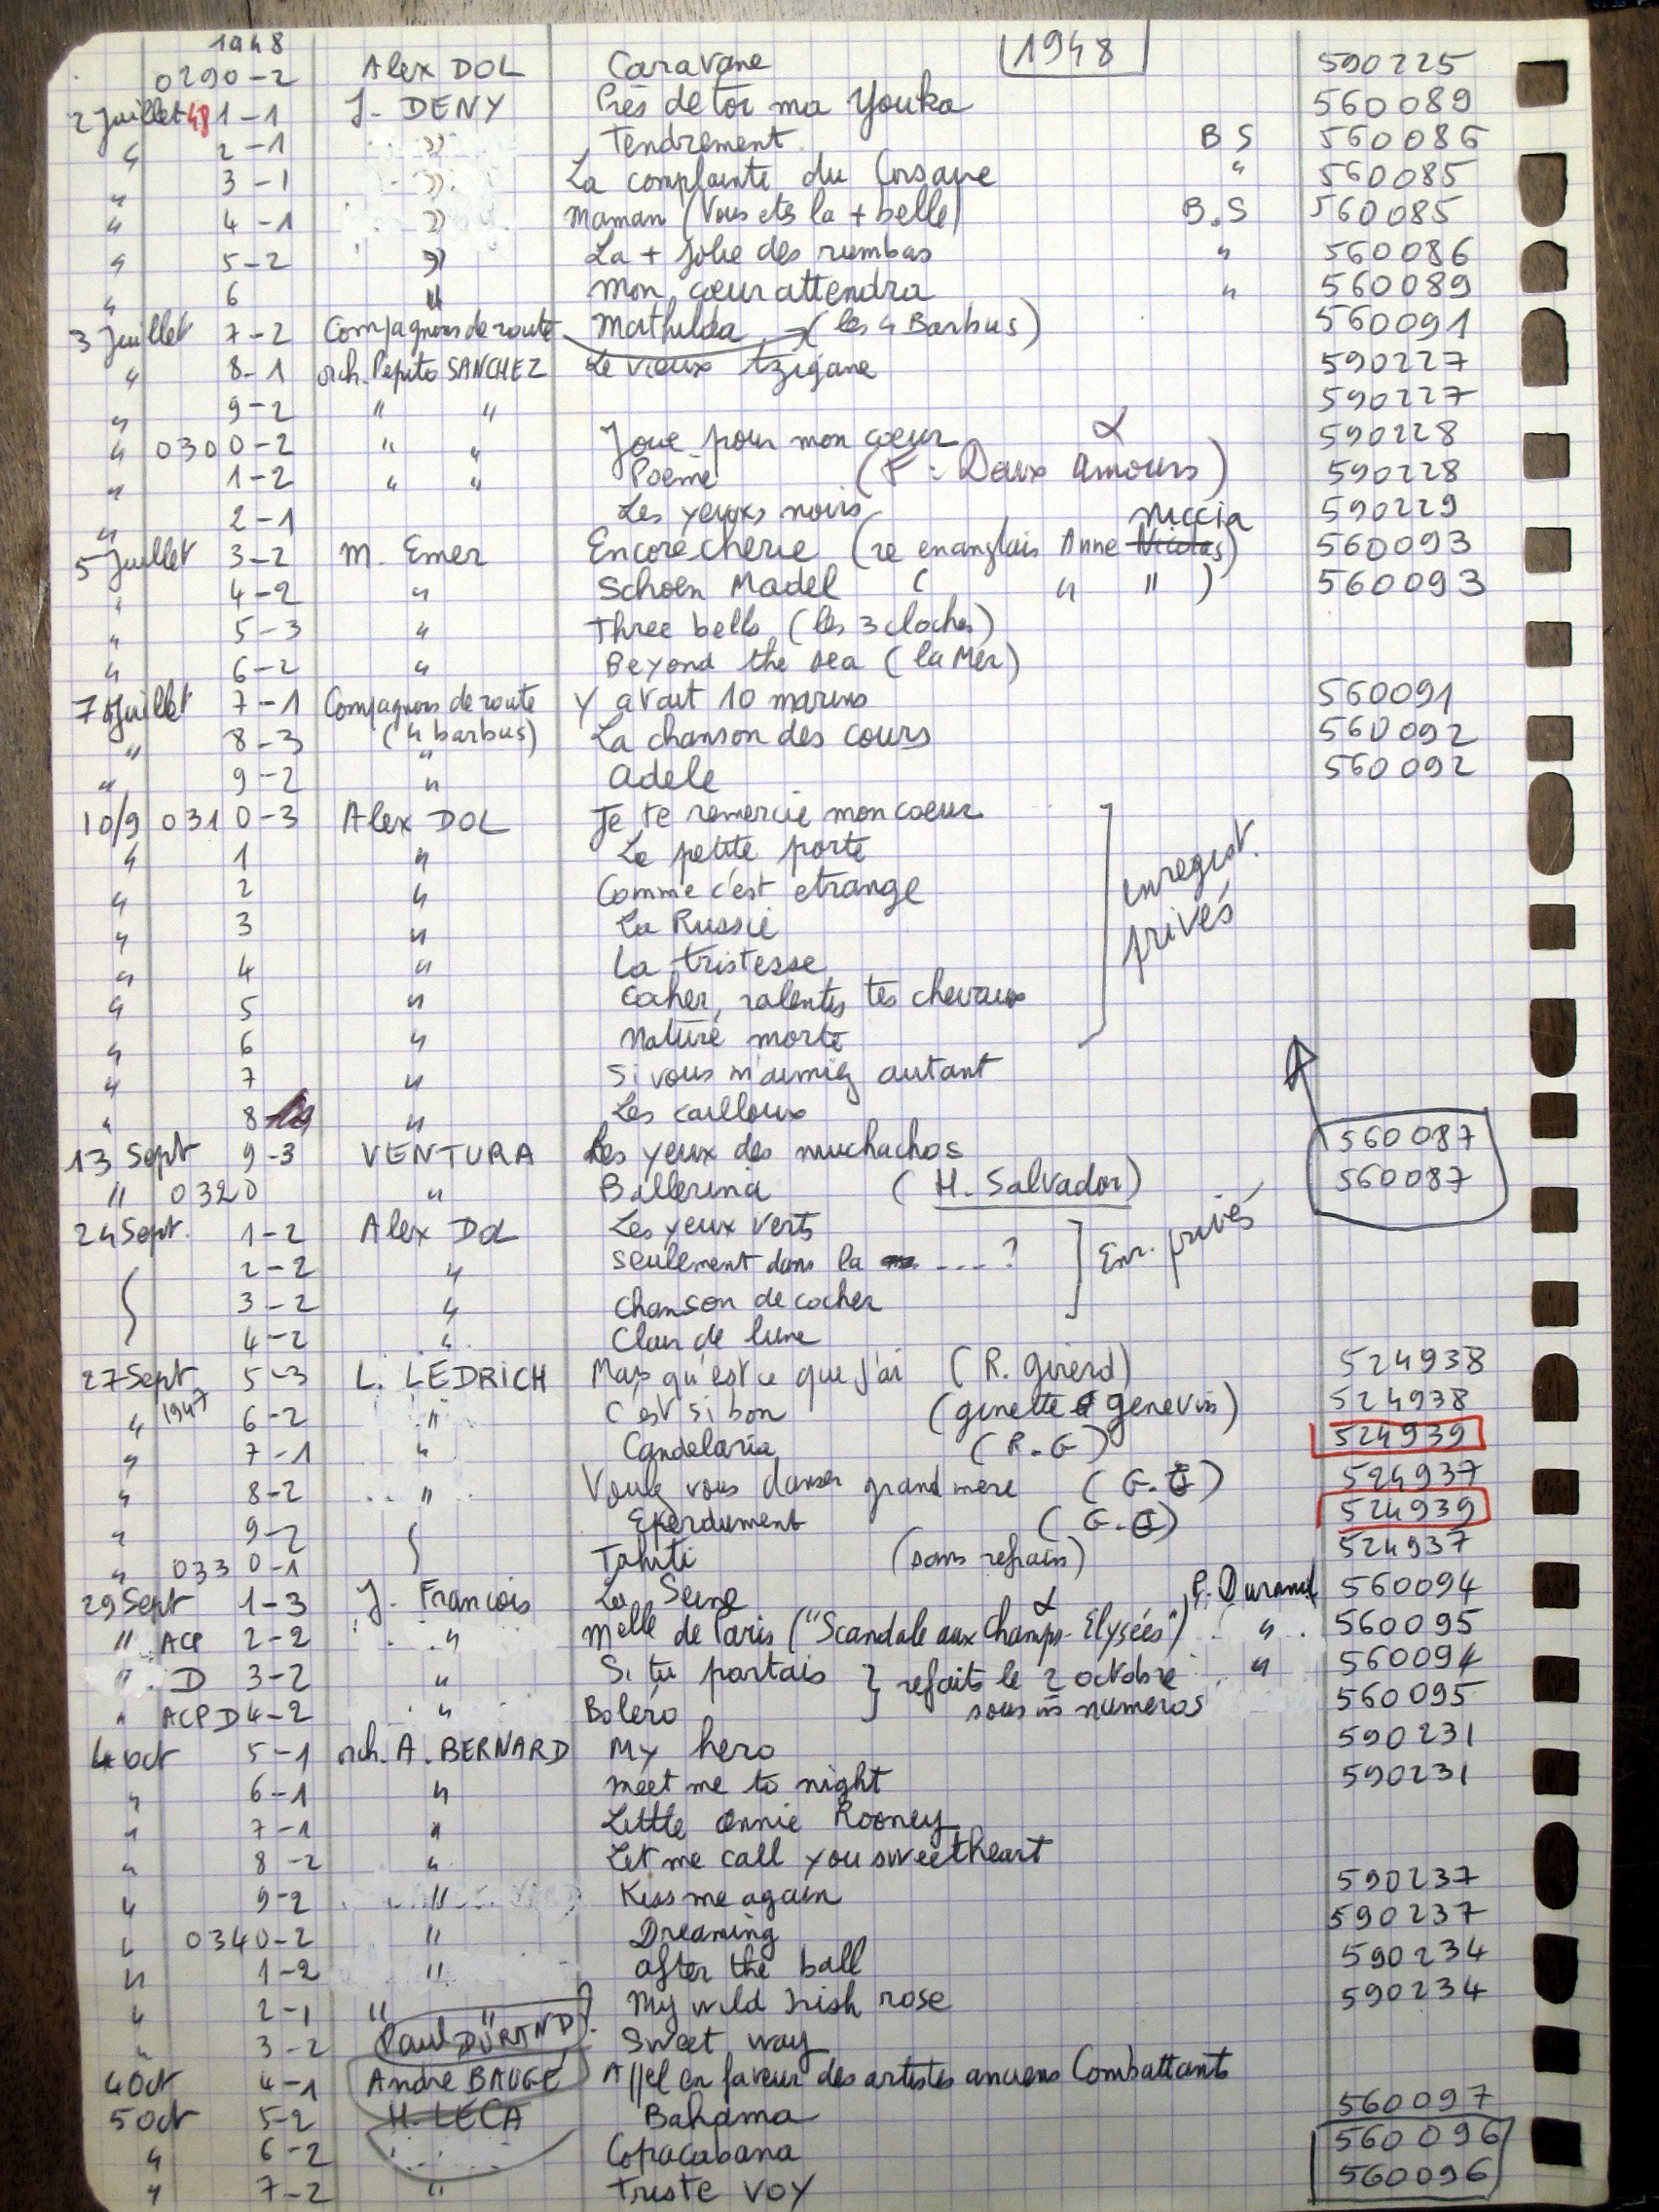 1948 1948
0290-2 Alex DOL Caravane 590225
2 Juillet 48 1-1 J. DENY Près de toi ma Youka 560089
" 2-1 " Tendrement B S 560086
" 3-1 " La complainte du Corsaire " 560085
" 4-1 " Maman (Vous etes la + belle) B.S 560085
" 5-2 " La + Jolie des rumbas " 560086
" 6 " Mon cœur attendra " 560089
3 Juillet 7-2 Compagnons de route Mathilda (les 4 Barbus) 560091
" 8-1 orch. Pepito SANCHEZ Le vieux tzigane 590227
" 9-2 " " 590227
" 0300-2 " " Joue pour mon cœur 590228
" 1-2 " " Poème (F: Deux Amours) 590228
" 2-1 Les yeux noirs 590229
niccia
5 Juillet 3-2 M. Emer Encore chérie (re en anglais Anne Nicolas) 560093
" 4-2 " Schoen Madel ( " " ) 560093
" 5-3 " Three bells (les 3 cloches)
" 6-2 " Beyond the sea (la Mer)
7 Juillet 7-1 Compagnons de route Y avait 10 marins 560091
" 8-3 (4 barbus) La chanson des cours 560092
" 9-2 " Adele 560092
10/9 0310-3 Alex DOL Je te remercie mon coeur
" 1 " La petite porte
" 2 " Comme c'est etrange
" 3 " La Russie
" 4 " La tristesse
" 5 " Cocher, ralentis tes chevaux
" 6 " Nature morte
enregist.
privés
" 7 " Si vous m'aimiez autant
" 8 " Les cailloux
13 Sept 9-3 VENTURA Les yeux des muchachos 560087
" 0320 " Ballerina (H. Salvador) 560087
24 Sept. 1-2 Alex DOL Les yeux verts
2-2 " Seulement dans la ....?
3-2 " Chanson de cocher
Enr. privés
4-2 " Clair de lune
27 Sept 5-3 L. LEDRICH Mais qu'est ce que j'ai (R. Girerd) 524938
" 1947 6-2 " C'est si bon (ginette genevin) 524938
" 7-1 " Candelaria (R.G) 524939
" 8-2 " Voulez vous danser grand mere (G.G) 524937
" 9-2 Eperdument (G.G) 524939
" 0330-1 Tahiti (sans refrain) 524937
29 Sept 1-3 J. Francois La Seine P. Durand 560094
" ACP 2-2 " Melle de Paris ("Scandale aux Champs-Elysées") " 560095
" D 3-2 " Si tu partais } refaits le 2 octobre " 560094
" ACPD 4-2 " Boléro sous us numeros 560095
4 oct 5-1 orch. A. BERNARD My hero 590231
" 6-1 " Meet me to night 590231
" 7-1 " Little Annie Rooney
" 8-2 " Let me call you sweetheart
" 9-2 " Kiss me again 590237
" 0340-2 " Dreaming 590237
" 1-2 " After the ball 590234
" 2-1 " " My wild Irish rose 590234
" 3-2 Paul DURAND? Sweet way
4 Oct 4-1 André BAUGE Appel en faveur des artistes anciens Combattants
5 Oct 5-2 H. LECA Bahama 560097
" 6-2 Copacabana 560096
" 7-2 " Triste VOY 560096